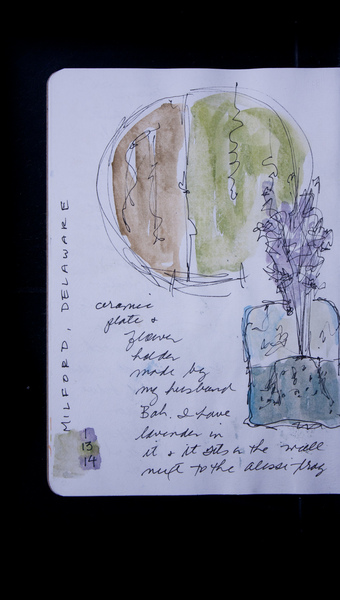 MILFORD, DELAWARE
1
13
14
ceramic
plate &
flower
holder
made by
my husband
Bah. I have
lavender in
it & it sits on the wall
next to the alessi tray